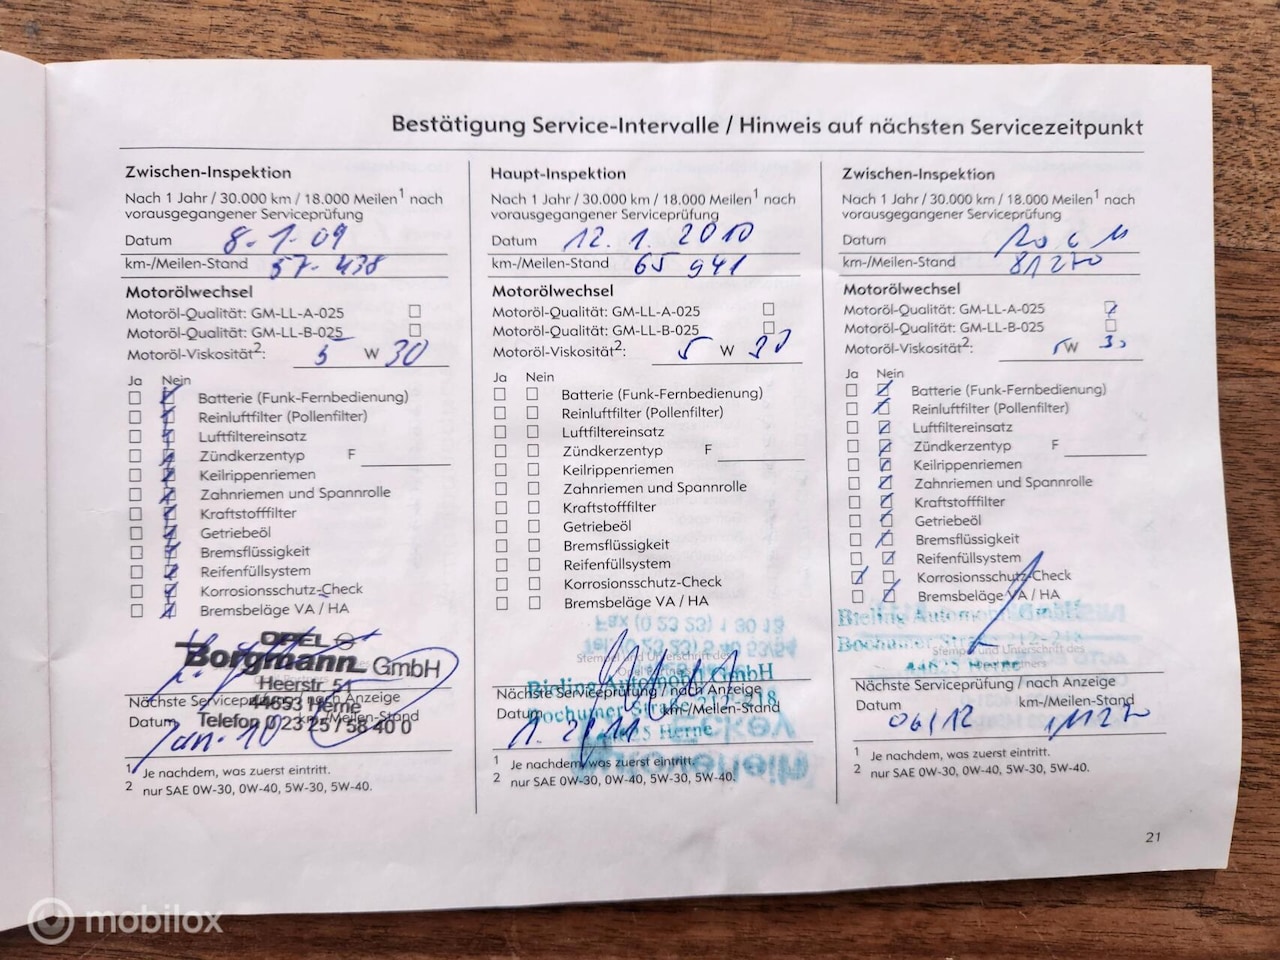 Bestätigung Service-Intervalle / Hinweis auf nächsten Servicezeitpunkt
Zwischen-Inspektion
Nach 1 Jahr / 30.000 km / 18.000 Meilen1 nach
vorausgegangener Serviceprüfung
Datum 8-1-09
km-/Meilen-Stand 57-438
Motorölwechsel
Motoröl-Qualität: GM-LL-A-025
Motoröl-Qualität: GM-LL-B-025
Motoröl-Viskosität2: 5 W 30
Ja Nein
Batterie (Funk-Fernbedienung)
Reinluftfilter (Pollenfilter)
Luftfiltereinsatz
Zündkerzentyp F
Keilrippenriemen
Zahnriemen und Spannrolle
Kraftstofffilter
Getriebeöl
Bremsflüssigkeit
Reifenfüllsystem
Korrosionsschutz-Check
Bremsbeläge VA / HA
OPEL
Borgmann GmbH
Heerstr. 51
44653 Herne
Telefon 0 23 25 / 58 40 0
Nächste Serviceprüfung / nach Anzeige
Datum km-/Meilen-Stand
Jan. 10
1 Je nachdem, was zuerst eintritt.
2 nur SAE 0W-30, 0W-40, 5W-30, 5W-40.
Haupt-Inspektion
Nach 1 Jahr / 30.000 km / 18.000 Meilen1 nach
vorausgegangener Serviceprüfung
Datum 12. 1. 2010
km-/Meilen-Stand 65 941
Motorölwechsel
Motoröl-Qualität: GM-LL-A-025
Motoröl-Qualität: GM-LL-B-025
Motoröl-Viskosität2: 5 W 30
Ja Nein
Batterie (Funk-Fernbedienung)
Reinluftfilter (Pollenfilter)
Luftfiltereinsatz
Zündkerzentyp F
Keilrippenriemen
Zahnriemen und Spannrolle
Kraftstofffilter
Getriebeöl
Bremsflüssigkeit
Reifenfüllsystem
Korrosionsschutz-Check
Bremsbeläge VA / HA
Stempel und Unterschrift des
Automobil GmbH
Nächste Serviceprüfung / nach Anzeige
Bochumer Straße 212-218
Datum km-/Meilen-Stand
Herne
1 Je nachdem, was zuerst eintritt.
2 nur SAE 0W-30, 0W-40, 5W-30, 5W-40.
Zwischen-Inspektion
Nach 1 Jahr / 30.000 km / 18.000 Meilen1 nach
vorausgegangener Serviceprüfung
Datum
km-/Meilen-Stand 81270
Motorölwechsel
Motoröl-Qualität: GM-LL-A-025
Motoröl-Qualität: GM-LL-B-025
Motoröl-Viskosität2: 5W 30
Ja Nein
Batterie (Funk-Fernbedienung)
Reinluftfilter (Pollenfilter)
Luftfiltereinsatz
Zündkerzentyp F
Keilrippenriemen
Zahnriemen und Spannrolle
Kraftstofffilter
Getriebeöl
Bremsflüssigkeit
Reifenfüllsystem
Korrosionsschutz-Check
Bremsbeläge VA / HA
Automobil GmbH
Bochumer Straße 212-218
Stempel und Unterschrift des
44625 Herne
Nächste Serviceprüfung / nach Anzeige
Datum km-/Meilen-Stand
06/12
1 Je nachdem, was zuerst eintritt.
2 nur SAE 0W-30, 0W-40, 5W-30, 5W-40.
21
mobilox